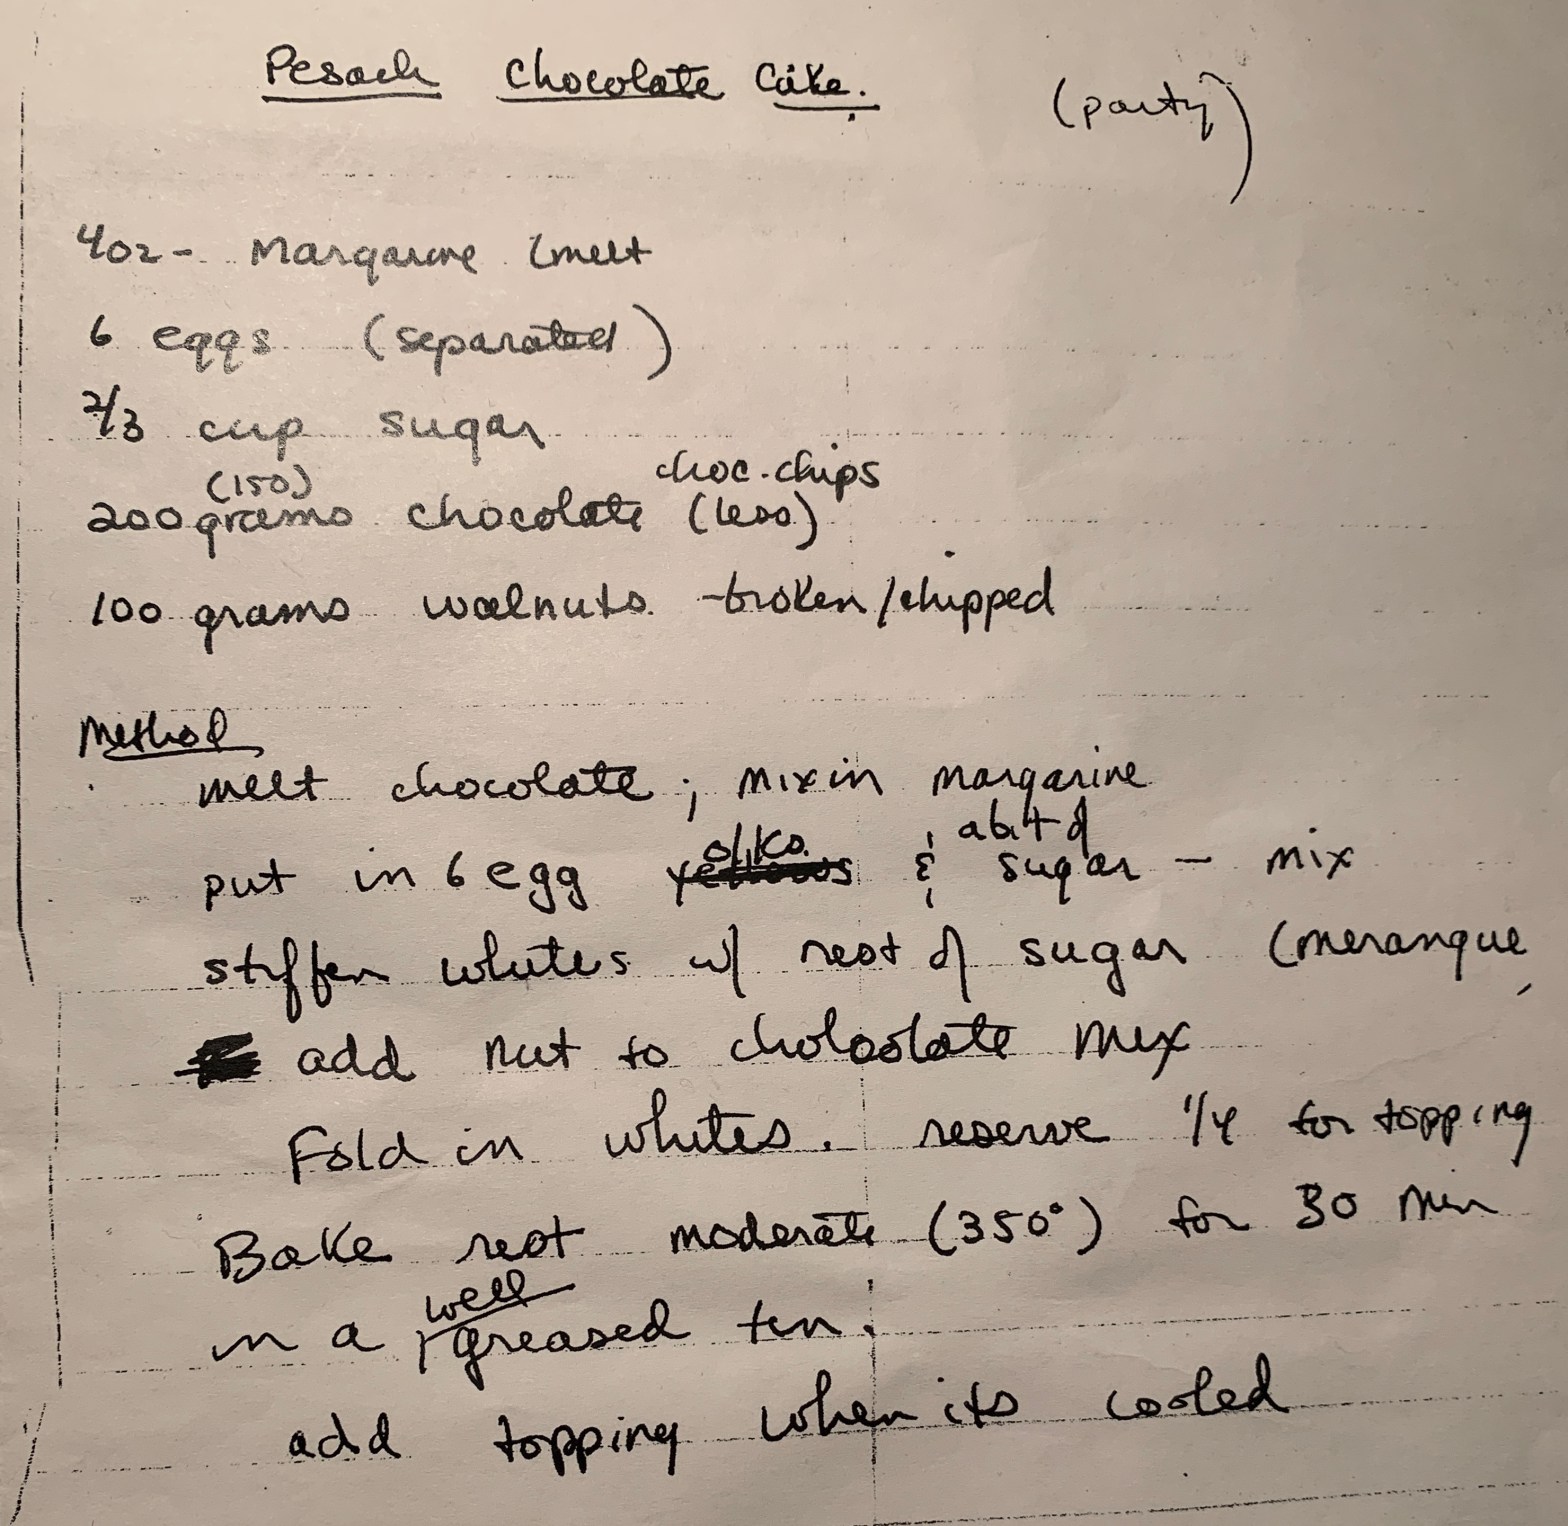 Pesach Chocolate Cake. (party)
4oz - Margarine (melt
6 eggs (separated)
2/3 cup sugar
(150) choc. chips
200 grams chocolate (less)
100 grams walnuts - broken/chipped
Method
melt chocolate ; mix in margarine
olks. a bit of
put in 6 egg yellows & sugar - mix
stiffen whites w/ rest of sugar (merangue,
add nut to choloolate mix
Fold in whites. reserve 1/4 for topping
Bake rest moderate (350°) for 30 min
well
in a greased tin.
add topping when its cooled